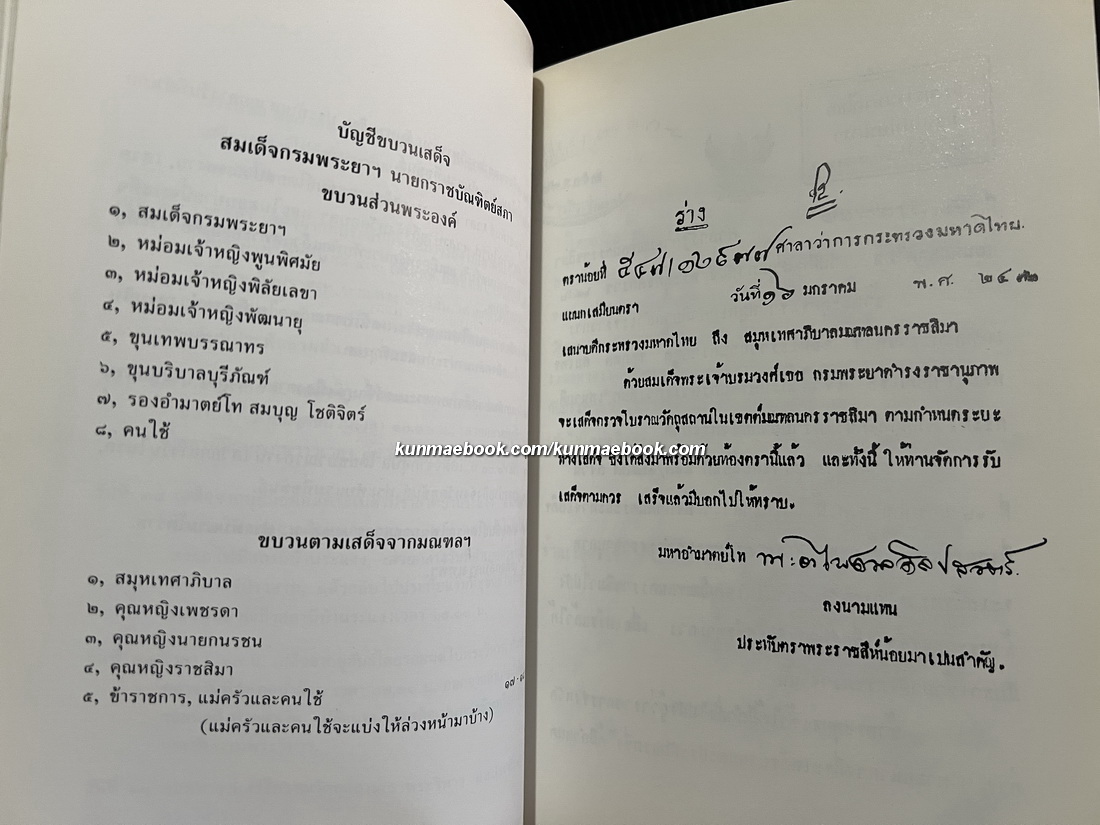 บัญชีขบวนเสด็จ
สมเด็จกรมพระยาฯ นายกราชบัณฑิตย์สภา
ขบวนส่วนพระองค์
๑, สมเด็จกรมพระยาฯ
๒, หม่อมเจ้าหญิงพูนพิศมัย
๓, หม่อมเจ้าหญิงพิลัยเลขา
๔, หม่อมเจ้าหญิงพัฒนายุ
๕, ขุนเทพบรรณาทร
๖, ขุนบริบาลบุรีภัณฑ์
๗, รองอำมาตย์โท สมบุญ โชติจิตร์
๘, คนใช้
ขบวนตามเสด็จจากมณฑลฯ
๑, สมุหเทศาภิบาล
๒, คุณหญิงเพชรดา
๓, คุณหญิงนายกนรชน
๔, คุณหญิงราชสิมา
๕, ข้าราชการ, แม่ครัวและคนใช้
(แม่ครัวและคนใช้จะแบ่งให้ล่วงหน้ามาบ้าง)
ร่าง
ตราน้อยที่ ศาลาว่าการกระทรวงมหาดไทย.
แผนกเสมียนตรา วันที่ ๑๖ มกราคม พ.ศ. ๒๔๗๒
เสนาบดีกระทรวงมหาดไทย ถึง สมุหเทศาภิบาลมณฑลนครราชสิมา
ด้วยสมเด็จพระเจ้าบรมวงศ์เธอ กรมพระยาดำรงราชานุภาพ
จะเสด็จตรวจโบราณวัตถุสถานในเขตต์มณฑลนครราชสิมา ตามกำหนดระยะ
ทางเสด็จ ซึ่งได้ส่งมาพร้อมด้วยท้องตรานี้แล้ว และทั้งนี้ ให้ท่านจัดการรับ
เสด็จตามควร เสร็จแล้วมีบอกไปให้ทราบ.
มหาอำมาตย์โท
ลงนามแทน
ประทับตราพระราชสีห์น้อยมาเปนสำคัญ.
kunmaebook.com/kunmaebook.com